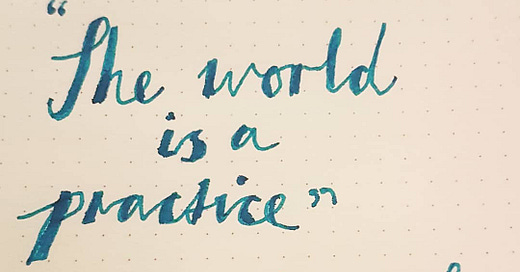 “The world
is a
practice”